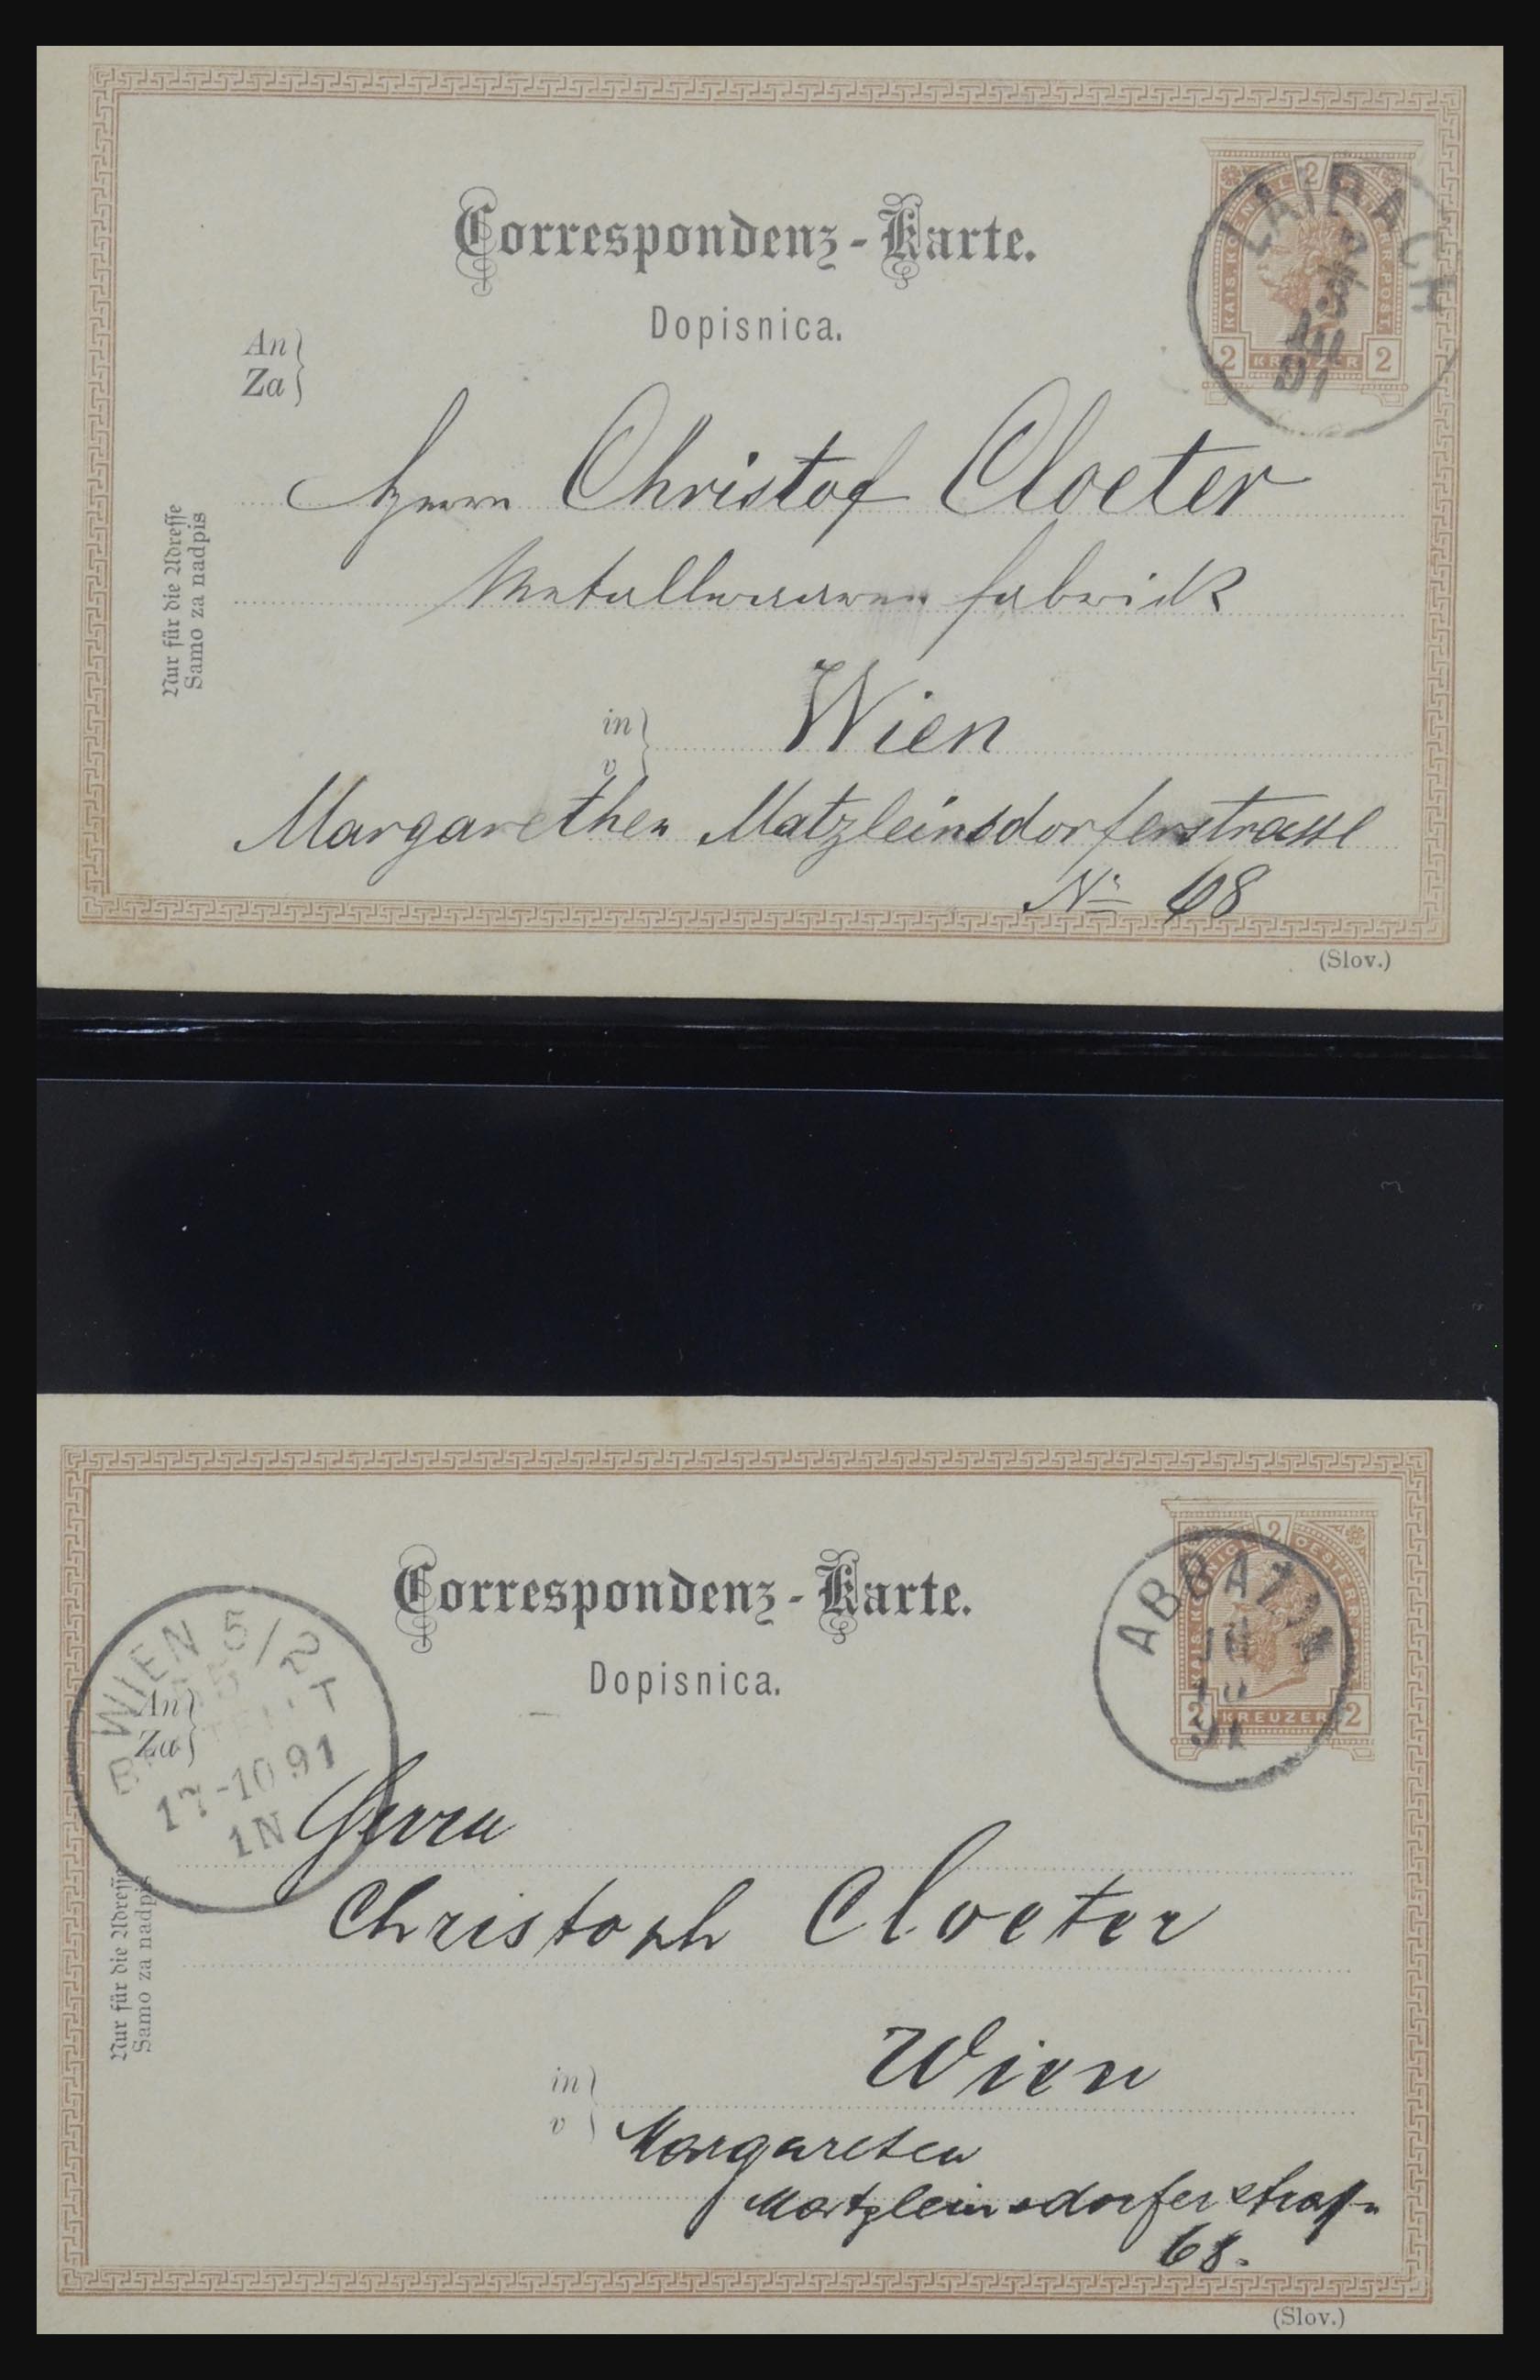 Correspondenz-Karte.
Dopisnica.
2
KAIS. KOENIGL.
POST.
2 KREUZER 2
LAIBACH
91
An
Za
Herrn Christof Cloeter
Metallwaaren fabrick
in
v
Wien
Margarethen Matzleinsdorferstrasse
No 68
Nur für die Adresse
Samo za nadpis
(Slov.)
Correspondenz-Karte.
Dopisnica.
2
OESTERR.
2 KREUZER 2
ABBAZIA
91
WIEN 5/2
17-10 91
1N
An
Za
Herrn
Christoph Cloeter
in
v
Wien
Margareten
Matzleinsdorferstraße
68.
Nur für die Adresse
Samo za nadpis
(Slov.)